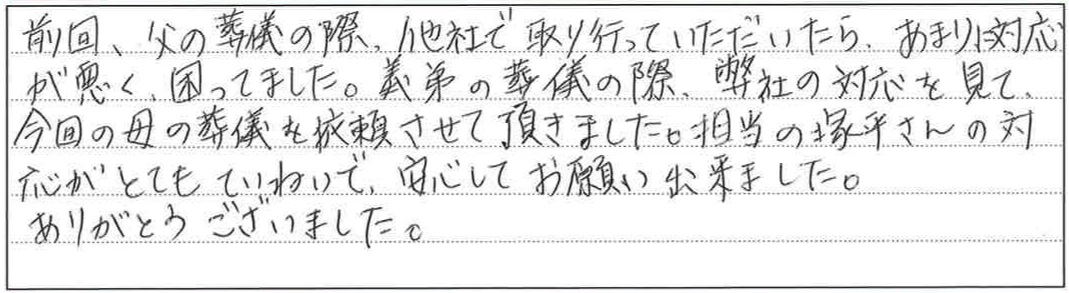 前回、父の葬儀の際、他社で取り行っていただいたら、あまりに対応
が悪く、困ってました。義弟の葬儀の際、弊社の対応を見て、
今回の母の葬儀を依頼させて頂きました。担当の塚平さんの対
応がとてもていねいで、安心してお願い出来ました。
ありがとうございました。